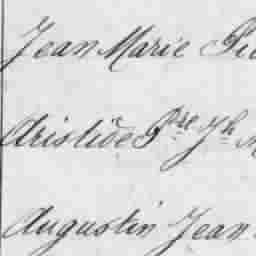 Jean Marie
Aristide Pre Jh
Augustin Jean